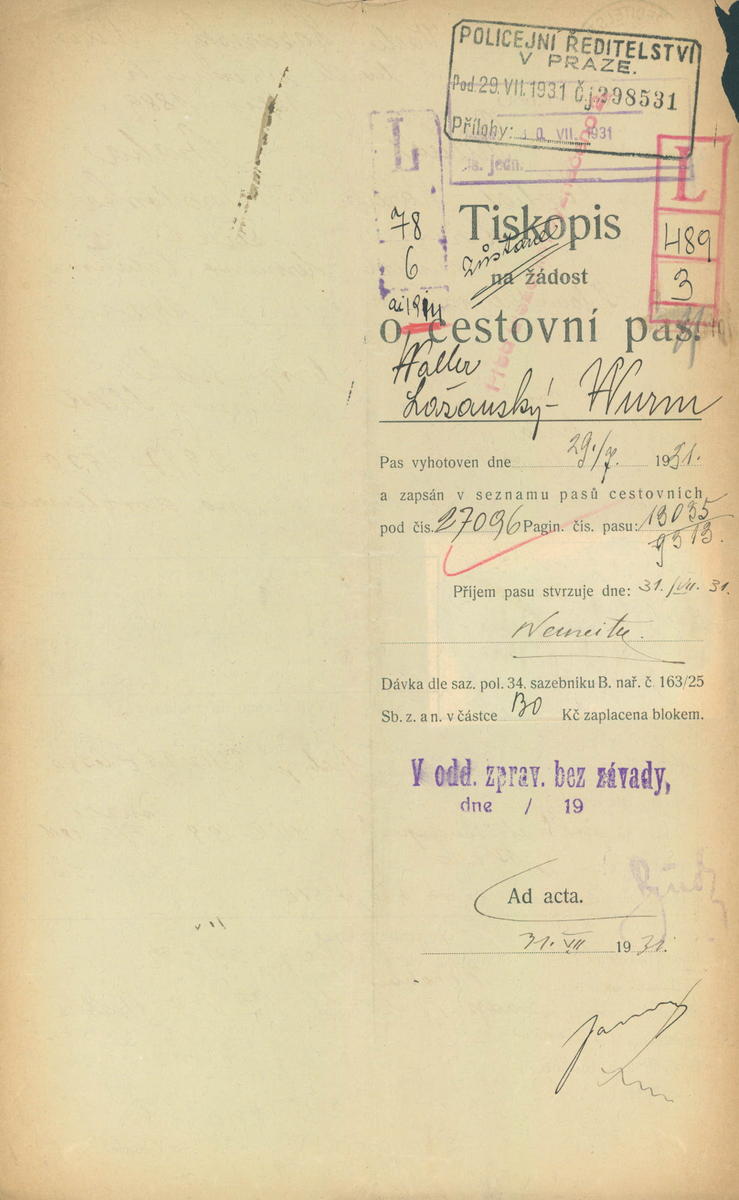 POLICEJNÍ ŘEDITELSTVÍ
V PRAZE.
Pod 29. VII. 1931 Č.j. 398531
Přílohy:
0. VII. 1931
čís. jedn.
L
78
6
L
489
3
Tiskopis
na žádost
o cestovní pas.
Walter
Lažanský-Wurm
Pas vyhotoven dne 29./7. 1931.
a zapsán v seznamu pasů cestovních
pod čís. 27096 Pagin. čís. pasu: 13035
9313.
Příjem pasu stvrzuje dne: 31./VII. 31.
Dávka dle saz. pol. 34. sazebníku B. nař. č. 163/25
Sb. z. a n. v částce Kč zaplacena blokem.
V odd. zprav. bez závady,
dne / 19
Ad acta.
31. VII 1931.